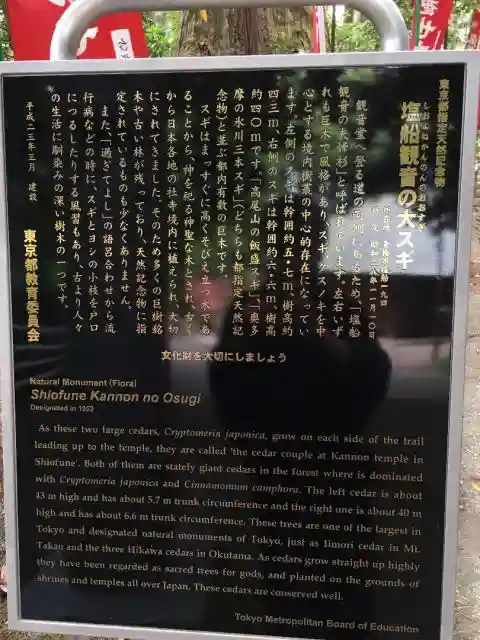 東京都指定天然記念物
しおふねかんのんのおおすぎ
塩船観音の大スギ
所在地 青梅市塩船一九四
指定 昭和二八年一一月一〇日
観音堂へ登る道の両側にあるため、「塩船
観音の夫婦杉」と呼ばれています。左右いず
れも巨木で風格があり、スギ、クスノキを中
心とする境内樹叢の中心的存在になってい
ます。左側のスギは幹囲約五・七m、樹高約
四三m、右側のスギは幹囲約六・六m、樹高
約四〇mです。「高尾山の飯盛スギ」、「奥多
摩の氷川三本スギ」(どちらも都指定天然記
念物)と並ぶ都内有数の巨木です。
スギはまっすぐに高くそびえ立つ木であ
ることから、神を祀る神聖な木とされ、古く
から日本各地の社寺境内に植えられ、大切
にされてきました。そのため多くの巨樹銘
木や古い林が残っており、天然記念物に指
定されているものも少なくありません。
また、「過ぎてよし」の語呂合わせから流
行病などの時に、スギとヨシの小枝を戸口
につるしたりする風習もあり、古より人々
の生活に馴染みの深い樹木の一つです。
平成二三年三月 建設
東京都教育委員会
文化財を大切にしましょう
Natural Monument (Flora)
Shiofune Kannon no Osugi
Designated in 1953
As these two large cedars, Cryptomeria japonica, grow on each side of the trail
leading up to the temple, they are called 'the cedar couple at Kannon temple in
Shiofune'. Both of them are stately giant cedars in the forest where is dominated
with Cryptomeria japonica and Cinnamomum camphora. The left cedar is about
43 m high and has about 5.7 m trunk circumference and the right one is about 40 m
high and has about 6.6 m trunk circumference. These trees are one of the largest in
Tokyo and designated natural monuments of Tokyo, just as Iimori cedar in Mt.
Takao and the three Hikawa cedars in Okutama. As cedars grow straight up highly
they have been regarded as sacred trees for gods, and planted on the grounds of
shrines and temples all over Japan. These cedars are conserved well.
Tokyo Metropolitan Board of Education